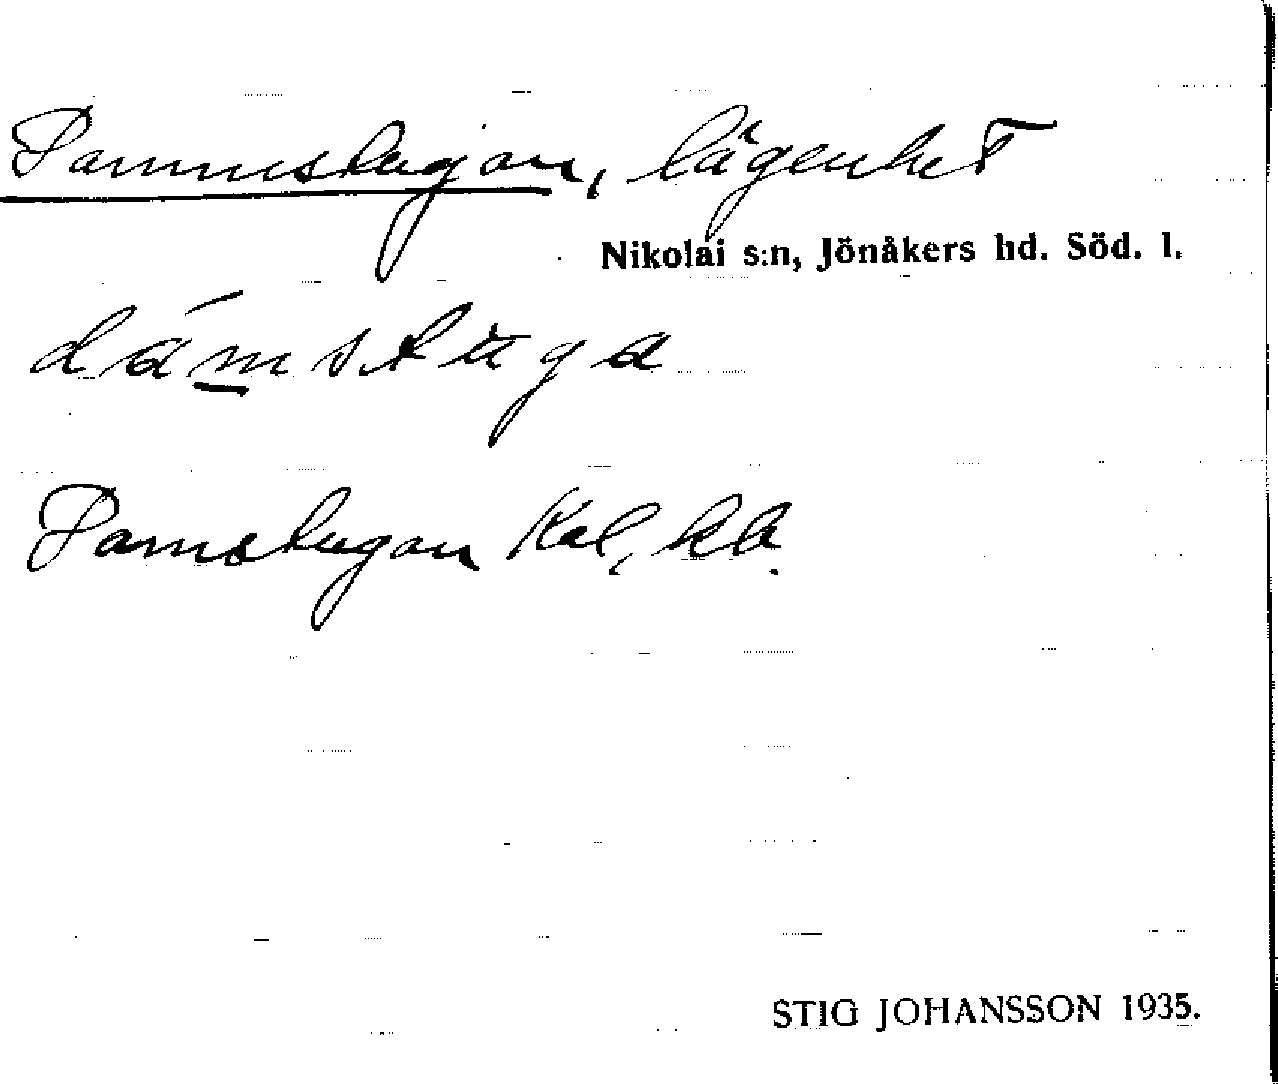 Dammstugan, lägenhet
Nikolai s:n, Jönåkers hd. Söd. l.
dám stuga
Damstugan Kal, kb.
STIG JOHANSSON 1935.